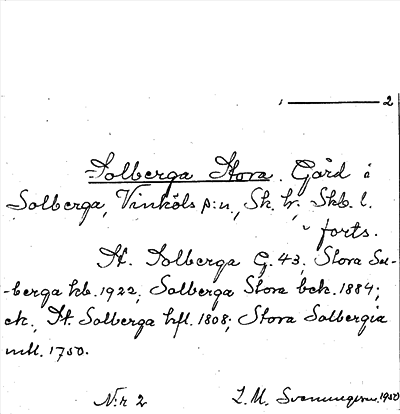 2
Solberga Stora. Gård å
Solberga, Vinköls s:n, Sk. hr. Skb. l.
forts.
St. Solberga G. 43, Stora Sol-
-berga hb. 1922, Solberga Stora bck. 1884;
ek., St Solberga hfl. 1808; Stora Solbergia
mtl. 1750.
N:r 2 L. M. Svenungsson. 1950